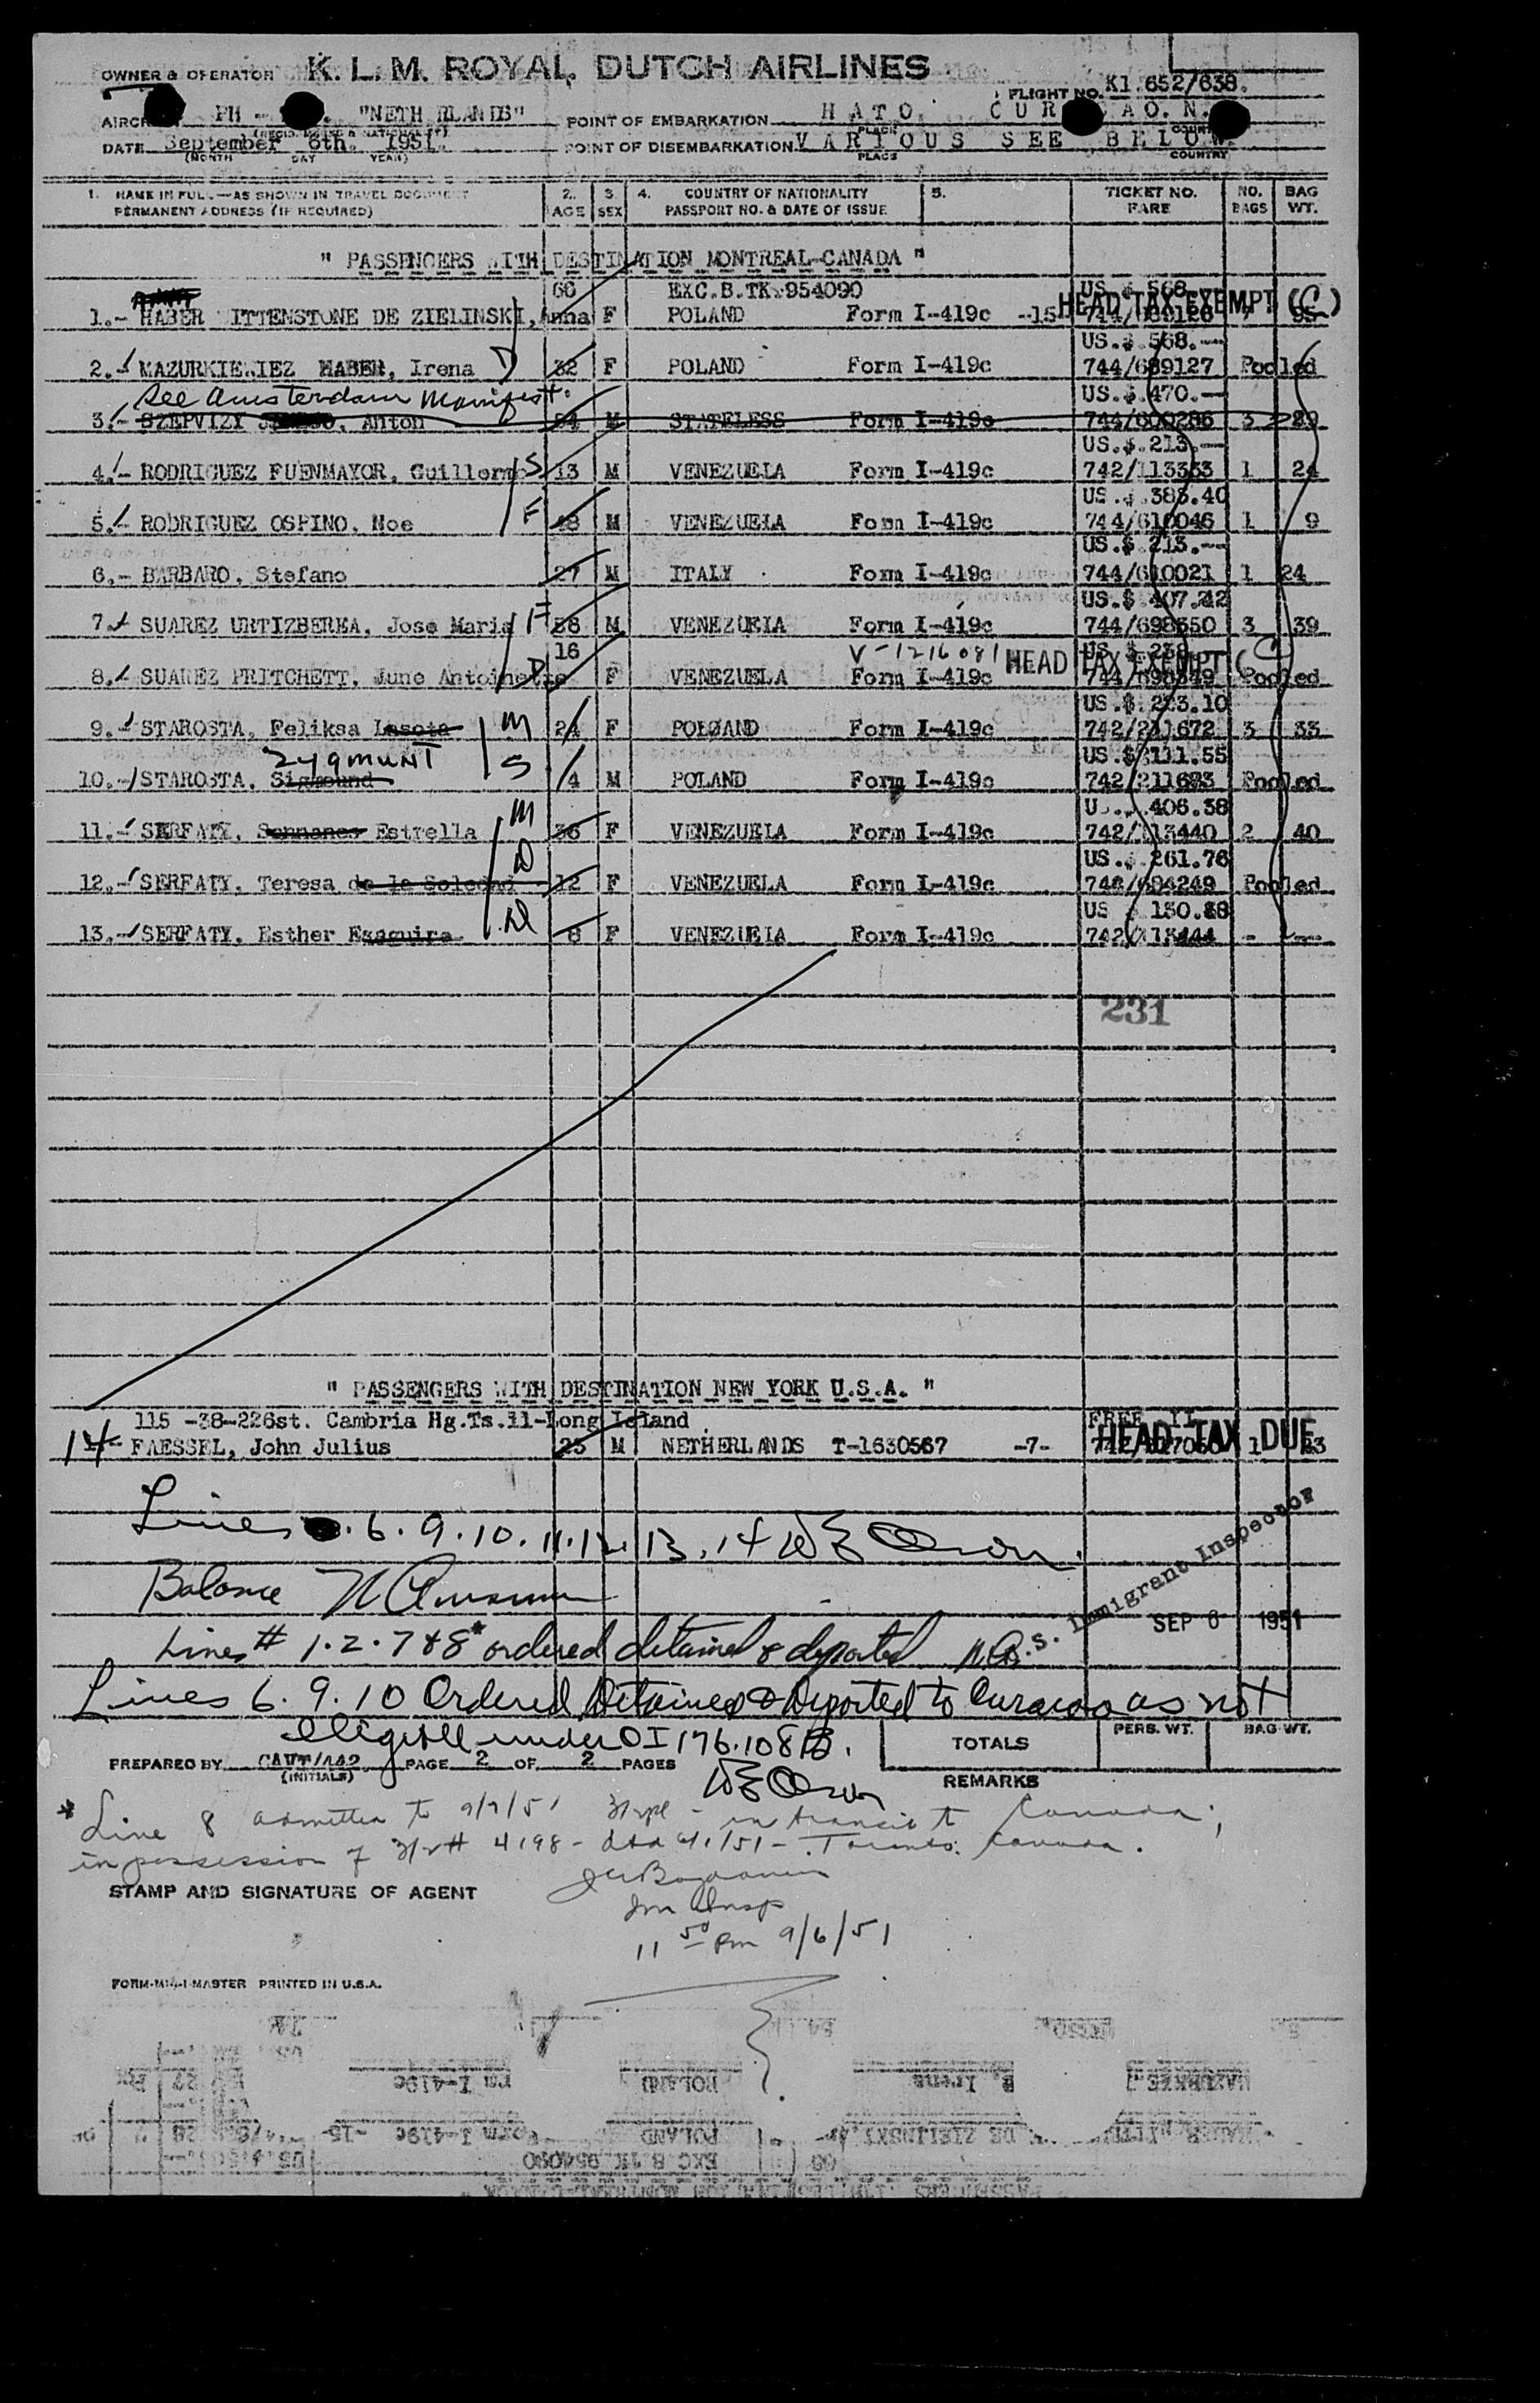 OWNER & OPERATOR K. L. M. ROYAL DUTCH AIRLINES
FLIGHT NO. Kl.652/638.
PH - "NETH RLANDS" POINT OF EMBARKATION HATO. CUR AO. N.
DATE September 6th. 1951. POINT OF DISEMBARKATION VARIOUS SEE BELOW.
(MONTH DAY YEAR) PLACE COUNTRY
1. NAME IN FULL—AS SHOWN IN TRAVEL DOCUMENT 2. 3. 4. COUNTRY OF NATIONALITY 5. TICKET NO. NO. BAG
PERMANENT ADDRESS (IF REQUIRED) AGE SEX PASSPORT NO. & DATE OF ISSUE FARE BAGS WT.
" PASSENGERS WITH DESTINATION MONTREAL-CANADA "
60 EXC.B.TK.954090 US.$.568.
1.- HABER WITTENSTONE DE ZIELINSKI, Anna F POLAND Form I-419c -15- HEAD TAX EXEMPT (C)
US.$.568.—
2.- MAZURKIEWIEZ HABER, Irena D 32 F POLAND Form I-419c 744/689127 Pooled
See Amsterdam Manifest. US.$.470.—
3.- SZEPVIZY Anton M STATELESS Form I-419c 744/600286 3 29
US.$.213.—
4.- RODRIGUEZ FUENMAYOR, Guillermo S 13 M VENEZUELA Form I-419c 742/113353 1 24
US.$.383.40
5.- RODRIGUEZ OSPINO, Noe F 48 M VENEZUELA Form I-419c 744/610046 1 9
US.$.213.—
6.- BARBARO, Stefano 27 M ITALY Form I-419c 744/610021 1 24
US.$.407.42
7.- SUAREZ URTIZBEREA, Jose Maria F M VENEZUELA Form I-419c 744/698350 3 39
16 V-1216081 HEAD TAX EXEMPT (C)
8.- SUAREZ PRITCHETT, June Antoinette D F VENEZUELA Form I-419c 744/698349 Pooled
US.$.223.10
9.- STAROSTA, Feliksa Lasota M 24 F POLAND Form I-419c 742/211672 3 33
Zygmunt US.$111.55
10.- STAROSTA, Sigmound S 4 M POLAND Form I-419c 742/211683 Pooled
M U. . 406.38
11.- SERFATY, Estrella 36 F VENEZUELA Form I-419c 742/113440 2 40
D US.$.261.76
12.- SERFATY, Teresa de la Soledad 12 F VENEZUELA Form I-419c Pooled
US $ 130.88
13.- SERFATY, Esther D 8 F VENEZUELA Form I-419c 742/113444 - —
231
" PASSENGERS WITH DESTINATION NEW YORK U.S.A. "
115 -38-226st. Cambria Hg.Ts.11-Long Island. FREE II
14 FAESSEL, John Julius 25 M NETHERLANDS T-1630567 -7- HEAD TAX DUE
Lines 6. 9. 10. 11. 12. 13. 14 WE Olson
Balance
Immigrant Inspector
SEP 6 1951
Lines # 1. 2. 7 & 8* ordered detained & deported N.A.
Lines 6. 9. 10 Ordered Detained & Deported to Curacao as not
eligible under OI 176.108B.
WE Olson
PERS. WT. BAG WT.
TOTALS
PREPARED BY CAUT/442 PAGE 2 OF 2 PAGES
(INITIALS)
REMARKS
* Line 8 admitted to 9/7/51 in transit to Canada;
in possession of # 4198 - dtd - Toronto, Canada.
STAMP AND SIGNATURE OF AGENT
Im Insp
11 50 Pm 9/6/51
PRINTED IN U.S.A.